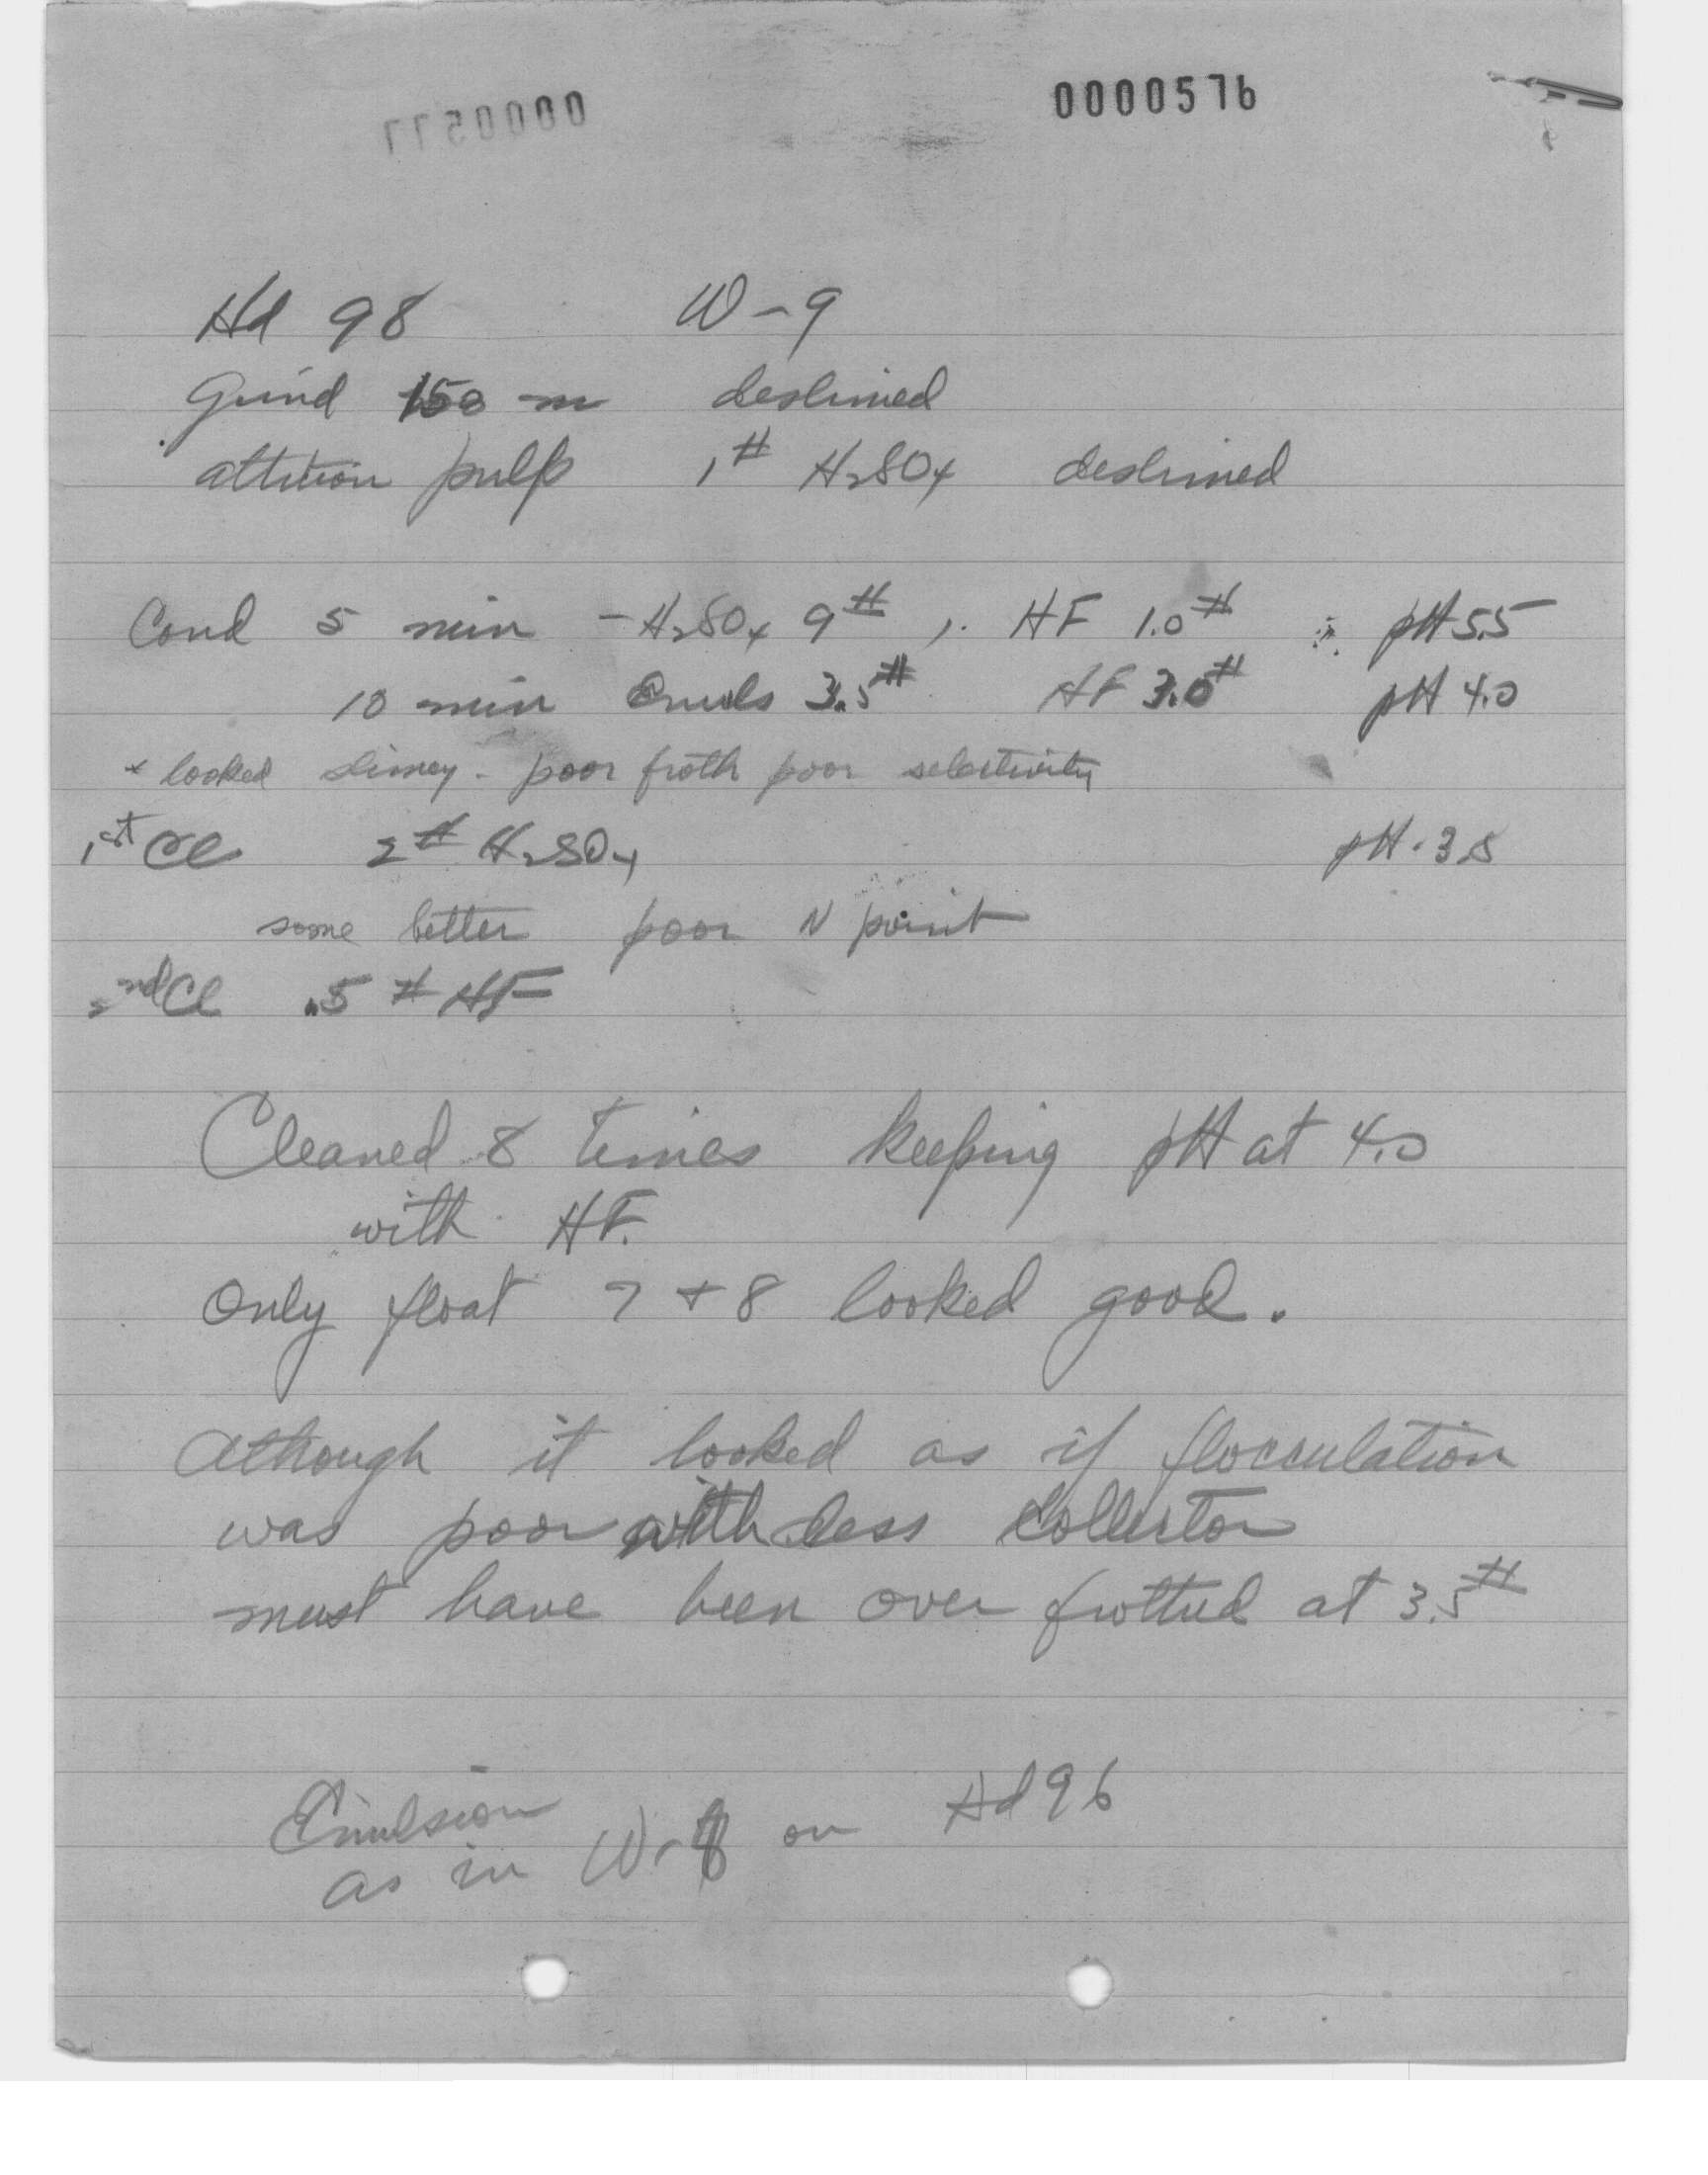 0000577 0000576
Hd 98 W-9
Grind 150 m deslimed
attrition pulp 1# H2SO4 deslimed
Cond 5 min - H2SO4 9#, HF 1.0# pH 5.5
10 min Emuls 3.5# HF 3.0# pH 4.0
* looked slimey - poor froth poor selectivity
1st Cl 2# H2SO4 pH - 3.8
some better poor N point
2nd Cl .5 # HF
Cleaned 8 times keeping pH at 4.0
with HF.
Only float 7 + 8 looked good.
Athough it looked as if flocculation
was poor with less collector
must have been over frothed at 3.5#
Emulsion
as in W- on Hd 96